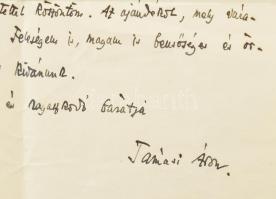 tettel köszöntöm. Az ajándékot, mely vára-
Feleségem is, magam is bensőséges és ör-
kívánunk.
és ragaszkodó barátja
Tamási Áron.